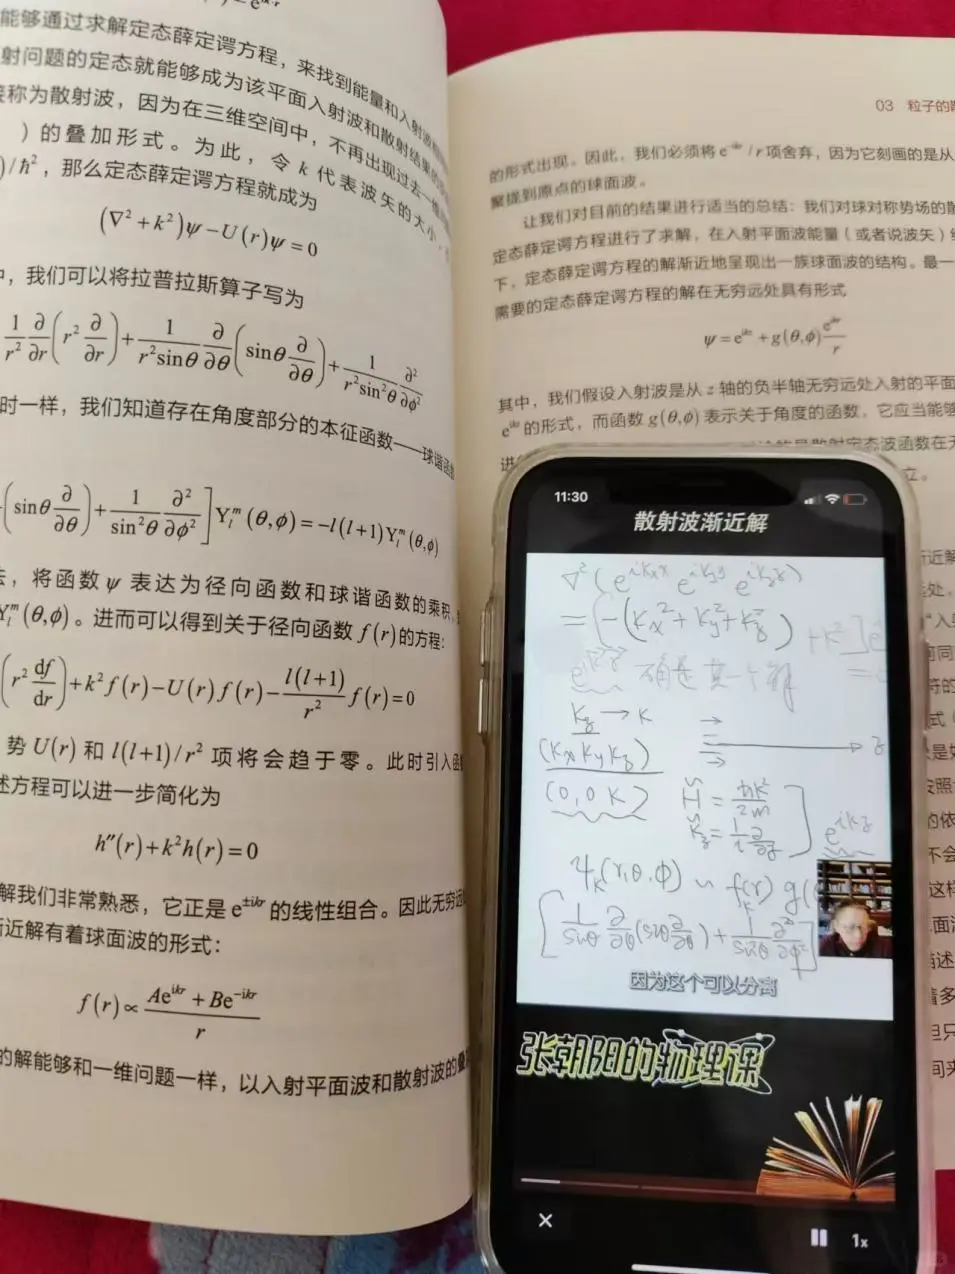 能够通过求解定态薛定谔方程，来找到能量和入射波
射问题的定态就能够成为该平面入射波和散射结果的
称为散射波，因为在三维空间中，不再出现过去一维
）的叠加形式。为此，令 k 代表波矢的大小，
)/ħ²，那么定态薛定谔方程就成为
(∇²+k²)ψ−U(r)ψ=0
，我们可以将拉普拉斯算子写为
1/r² ∂/∂r (r² ∂/∂r) + 1/(r² sinθ) ∂/∂θ (sinθ ∂/∂θ) + 1/(r² sin²θ) ∂²/∂ϕ²
时一样，我们知道存在角度部分的本征函数——球谐函
(sinθ ∂/∂θ) + 1/sin²θ ∂²/∂ϕ² ] Yₗᵐ(θ,ϕ)=−l(l+1)Yₗᵐ(θ,ϕ)
，将函数 ψ 表达为径向函数和球谐函数的乘积，
Yₗᵐ(θ,ϕ)。进而可以得到关于径向函数 f(r) 的方程：
(r² df/dr) + k² f(r) − U(r) f(r) − l(l+1)/r² f(r) = 0
势 U(r) 和 l(l+1)/r² 项将会趋于零。此时引入函
述方程可以进一步简化为
h″(r)+k²h(r)=0
解我们非常熟悉，它正是 e^{±ikr} 的线性组合。因此无穷远
近解有着球面波的形式：
f(r) ∝ (Ae^{ikr} + Be^{−ikr})/r
的解能够和一维问题一样，以入射平面波和散射波的叠
03 粒子的
的形式出现。因此，我们必须将 e^{−ikr}/r 项舍弃，因为它刻画的是从
聚拢到原点的球面波。
让我们对目前的结果进行适当的总结：我们对球对称势场的散
定态薛定谔方程进行了求解，在入射平面波能量（或者说波矢）
下，定态薛定谔方程的解渐近地呈现出一族球面波的结构。最
需要的定态薛定谔方程的解在无穷远处具有形式
ψ = e^{ikz} + g(θ,ϕ) e^{ikr}/r
其中，我们假设入射波是从 z 轴的负半轴无穷远处入射的平面
e^{ikz} 的形式，而函数 g(θ,ϕ) 表示关于角度的函数，它应当能够
立。
11:30
散射波渐近解
∇²(e^{ikₓx} e^{ik_y y} e^{ik_z z})
= [−(kₓ²+k_y²+k_z²) +k²]
e^{ikz} 确是其一个解
k_z → k
(kₓ k_y k_z)
z
(0,0 k)
Ĥ = ħk²/2m
k̂_z = 1/i ∂/∂z
e^{ikz}
ψ_k(r,θ,ϕ) ~ f_k(r) g(
[1/sinθ ∂/∂θ (sinθ ∂/∂θ) + 1/sin²θ ∂²/∂ϕ²]
因为这个可以分离
张朝阳的物理课
1x